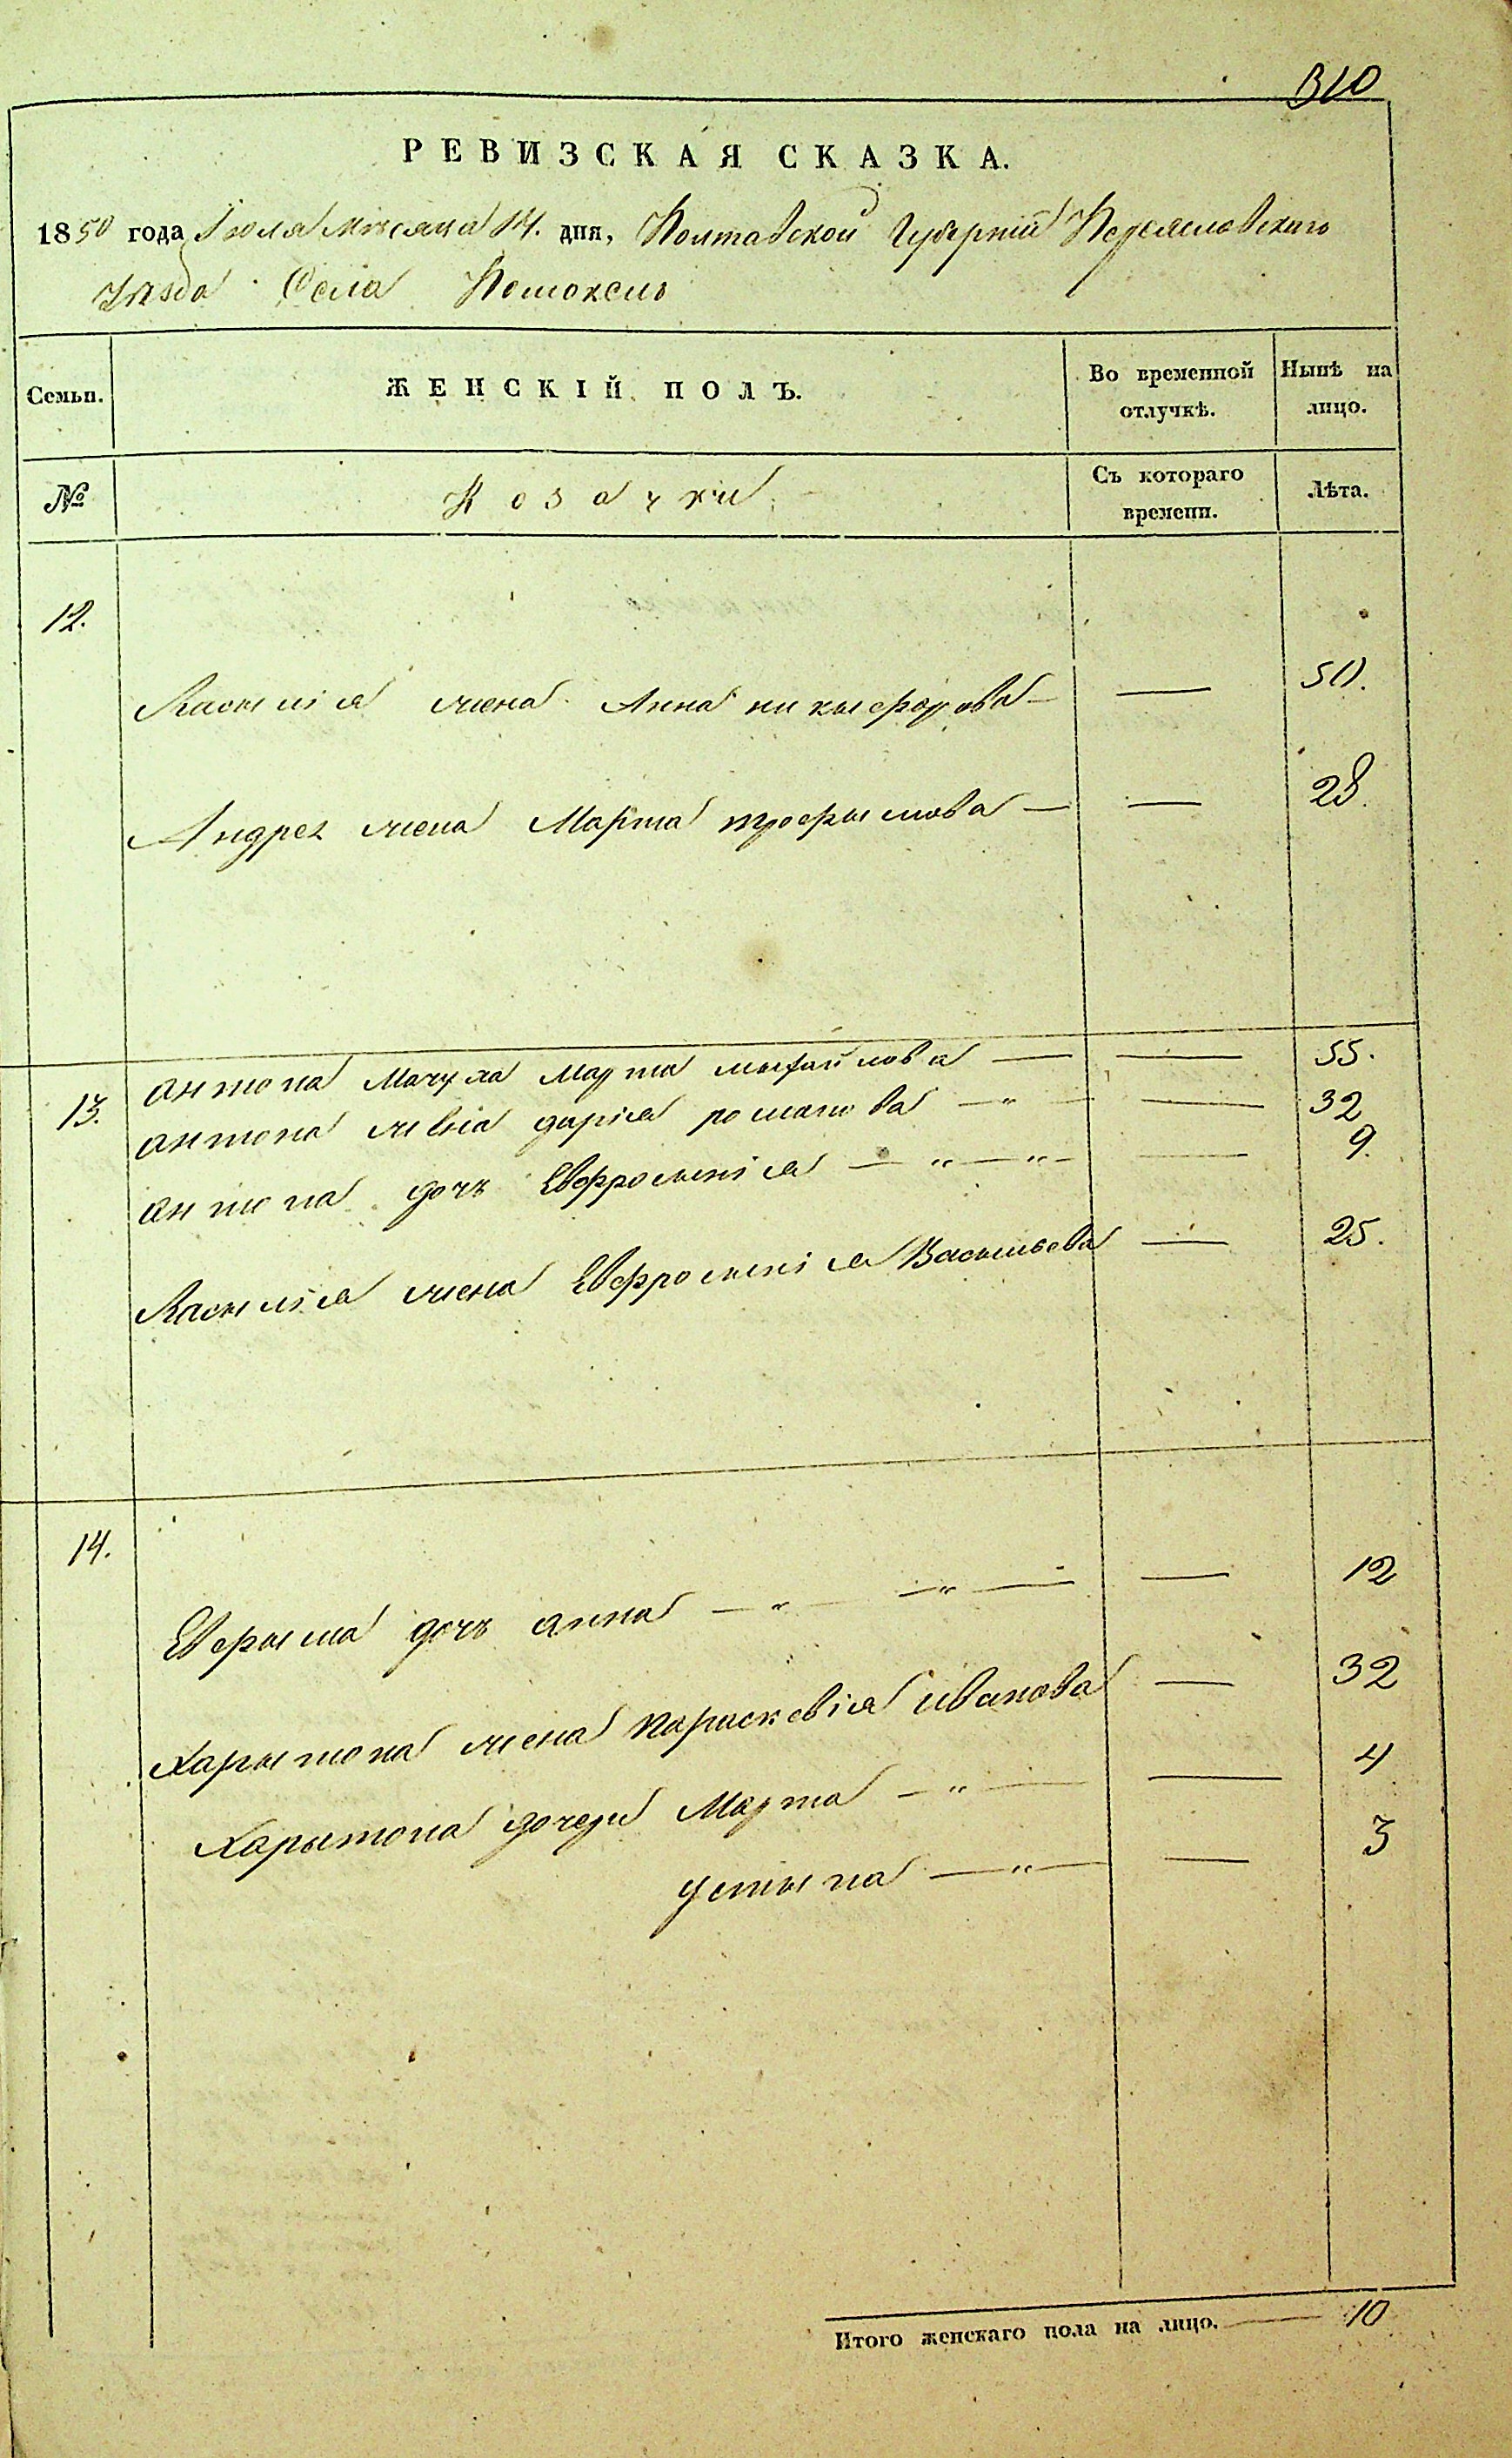 310
РЕВИЗСКАЯ СКАЗКА.
1850 года Іюля месяца 14. дня, Полтавской Губерніи Переяславскаго
Уезда Села Помоклей
Семьи. ЖЕНСКІЙ ПОЛЪ. Во временной отлучкѣ. Нынѣ на лицо.
№ Козачки Съ котораго времени. Лѣта.
12.
Василія жена Анна никыфорова — — 50.
Андрея жена Марта трофымова — — 28.
13. антона мачуха Марта мыхайлова — — 55.
антона жена дарія романова — — 32
антона дочь Евфросинія — — 9.
Василія жена Евфросинія Васильева — 25.
14.
Ефрыма дочь анна — — 12
Харытона жена параскевія иванова — 32
Харытона дочери Марта — — 4
устына — — 3
Итого женскаго пола на лицо. — 10